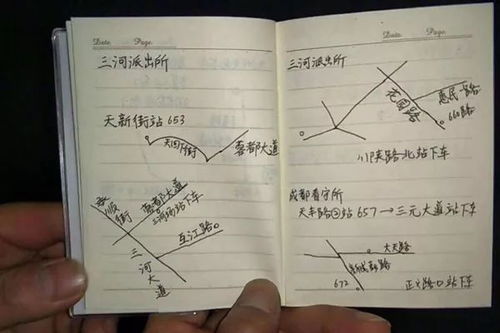 Date. Page.
三河派出所
天新街站 653
天回街
蓉都大道
蓉都大道
三河场站下车
顺街
互江路
三河大道
Date. Page.
三河派出所
花园路
惠民路
660路
川陕路北站下车
成都看守所
天丰路②站 657→三元大道站下车
大天路
新成彭路
672
正义路口站下车